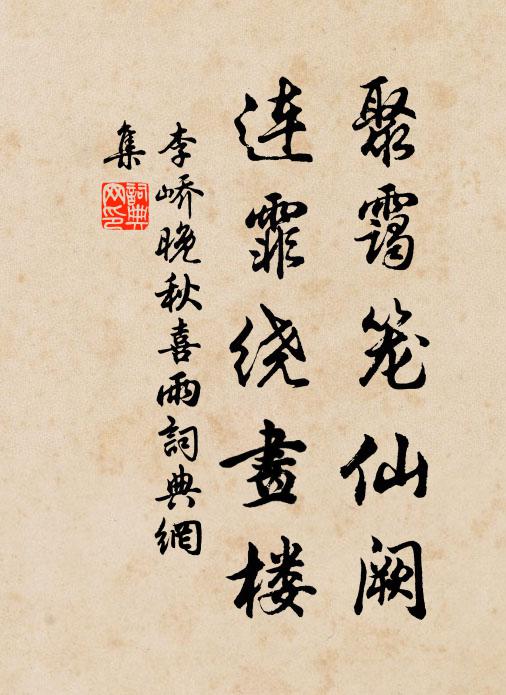 聚霭笼仙阙
连霏绕画楼
李峤晚秋喜雨词典网
集
词典网印